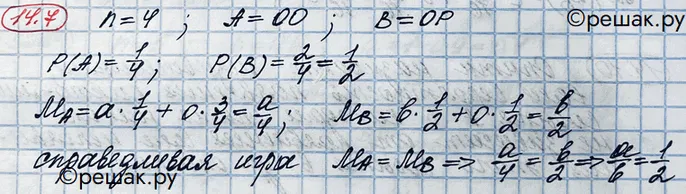 14.7 n=4 ; A=OO ; B=OP ©решак.ру
P(A)=1/4; P(B)=2/4=1/2
M_A=a·1/4+0·3/4=a/4; M_B=b·1/2+0·1/2=b/2
справедливая игра M_A=M_B ⟹ a/4=b/2 ⟹ a/b=1/2
©решак.ру